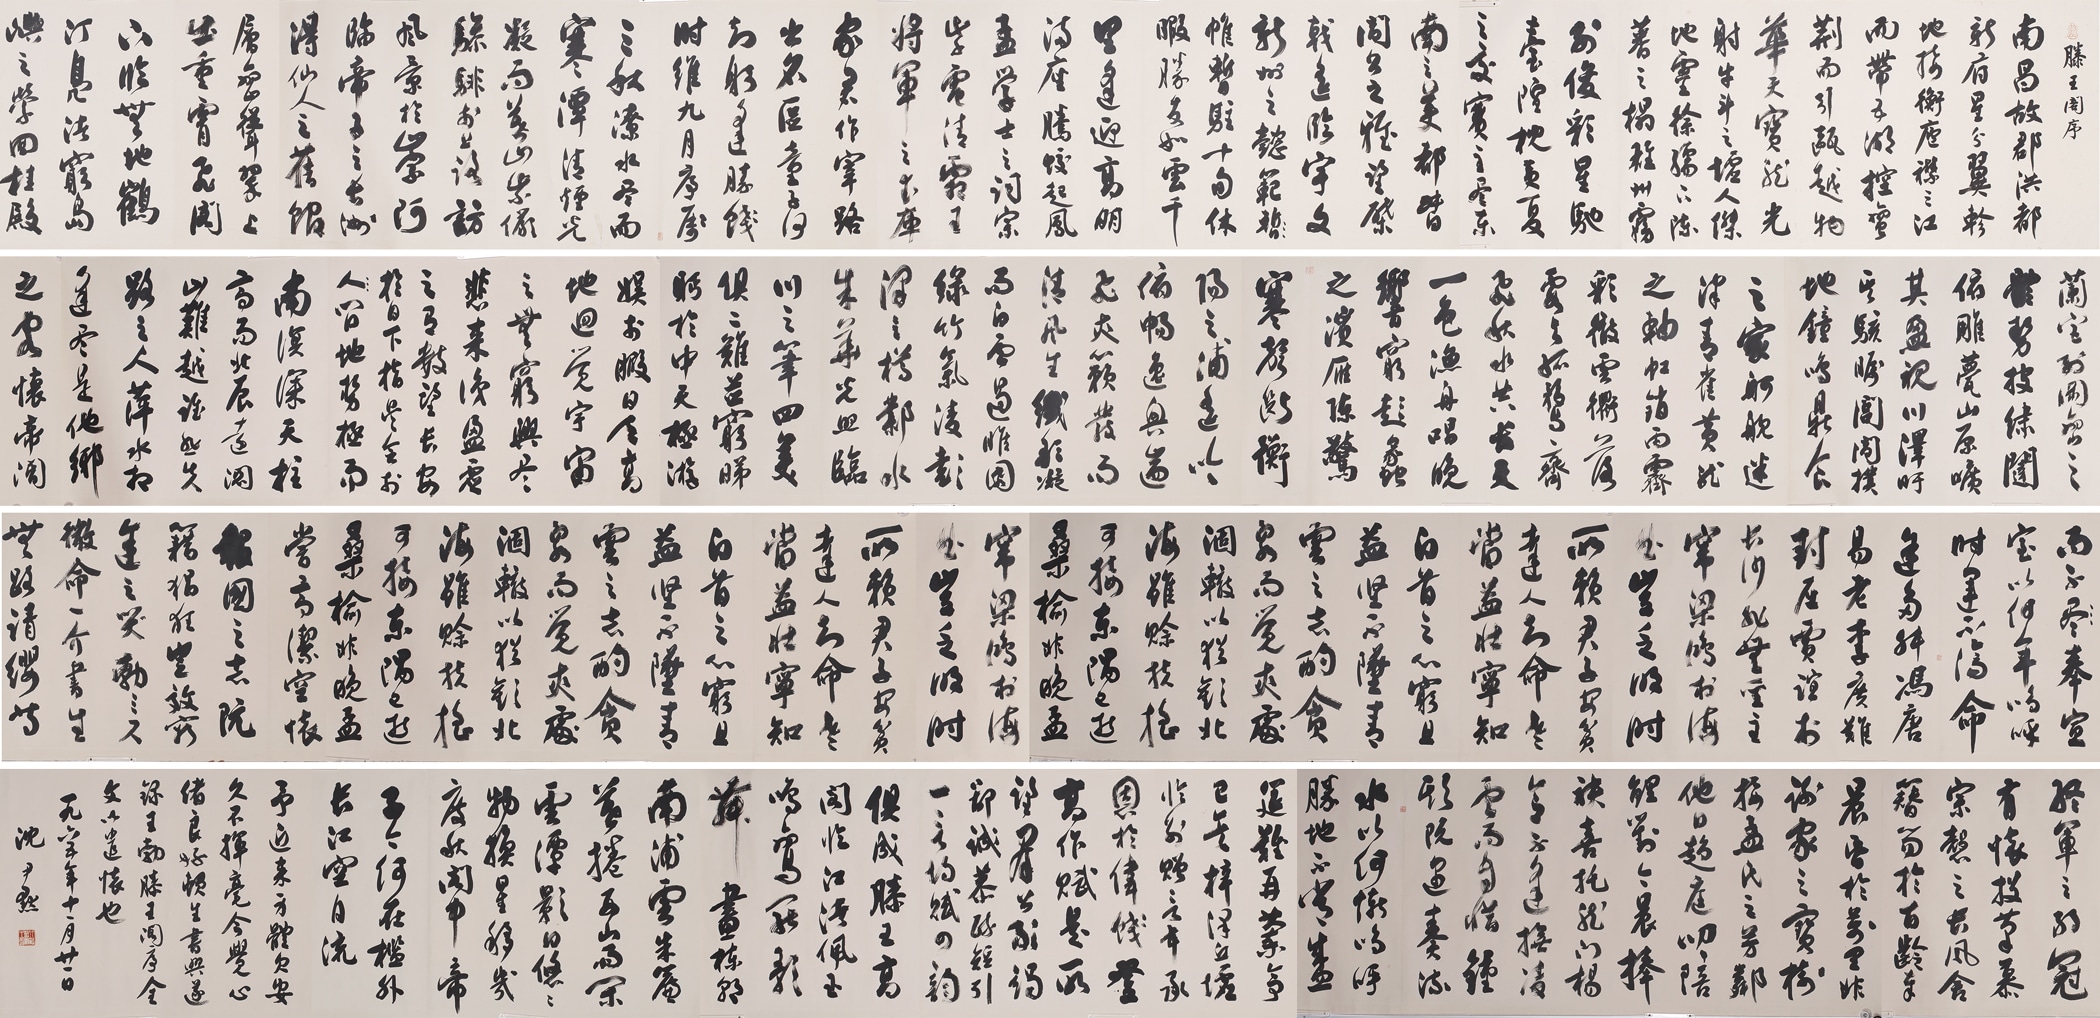 滕王閣序
南昌故郡洪都
新府星分翼軫
地接衡廬襟三江
而帶五湖控蠻
荊而引甌越物
華天寶龍光
射牛斗之墟人傑
地靈徐孺下陳
蕃之榻雄州霧
列俊彩星馳
臺隍枕夷夏
之交賓主盡東
南之美都督
閻公之雅望棨
戟遙臨宇文
新州之懿範襜
帷暫駐十旬休
暇勝友如雲千
里逢迎高朋
滿座騰蛟起鳳
孟學士之詞宗
紫電清霜王
將軍之武庫
家君作宰路
出名區童子何
知躬逢勝餞
時維九月序屬
三秋潦水盡而
寒潭清煙光
凝而暮山紫儼
驂騑於上路訪
風景於崇阿
臨帝子之長洲
得仙人之舊館
層巒聳翠上
出重霄飛閣
下臨無地鶴
汀鳧渚窮島
嶼之縈回桂殿
蘭宮列岡巒之
體勢披繡闥
俯雕甍山原曠
其盈視川澤盱
其駭矚閭閻撲
地鐘鳴鼎食
之家舸艦迷
津青雀黃龍
之軸虹銷雨霽
彩徹雲衢落
霞與孤鶩齊
飛秋水共長天
一色漁舟唱晚
響窮彭蠡
之濱雁陣驚
寒聲斷衡
陽之浦遙吟
俯暢逸興遄
飛爽籟發而
清風生纖歌凝
而白雲遏睢園
綠竹氣凌彭
澤之樽鄴水
朱華光照臨
川之筆四美
俱二難并窮睇
眄於中天極遊
娛於暇日天高
地迥覺宇宙
之無窮興盡
悲來識盈虛
之有數望長安
於日下指吳會於
人間地勢極而
南溟深天柱
高而北辰遠關
山難越誰悲失
路之人萍水相
逢盡是他鄉
之客懷帝閽
而不見奉宣
室以何年嗚呼
時運不濟命
途多舛馮唐
易老李廣難
封屈賈誼於
長沙非無聖主
竄梁鴻於海
曲豈乏明時
所賴君子安貧
達人知命老
當益壯寧知
白首之心窮且
益堅不墜青
雲之志酌貪
泉而覺爽處
涸轍以猶歡北
海雖賒扶搖
可接東隅已逝
桑榆非晚孟
竄梁鴻於海
曲豈乏明時
所賴君子安貧
達人知命老
當益壯寧知
白首之心窮且
益堅不墜青
雲之志酌貪
泉而覺爽處
涸轍以猶歡北
海雖賒扶搖
可接東隅已逝
桑榆非晚孟
嘗高潔空懷
報國之志阮
籍猖狂豈效窮
途之哭勃三尺
微命一介書生
無路請纓等
終軍之弱冠
有懷投筆慕
宗慤之長風舍
簪笏於百齡奉
晨昏於萬里非
謝家之寶樹
接孟氏之芳鄰
他日趨庭叨陪
鯉對今晨捧
袂喜托龍門楊
意不逢撫凌
雲而自惜鍾
期既遇奏流
水以何慚嗚呼
勝地不常盛
筵難再蘭亭
已矣梓澤丘墟
臨別贈言幸承
恩於偉餞登
高作賦是所
望群公敢竭
鄙誠恭疏短引
一言均賦四韻
俱成滕王高
閣臨江渚佩玉
鳴鸞罷歌
舞畫棟朝
南浦雲朱簾
暮捲西山雨閑
雲潭影日悠悠
物換星移幾
度秋閣中帝
子今何在檻外
長江空自流
予近來方體欠安
久不揮毫今覺心
緒良好頓生書興遂
錄王勃滕王閣序全
文以遣懷也
一九六年十一月廿一日
沈尹默